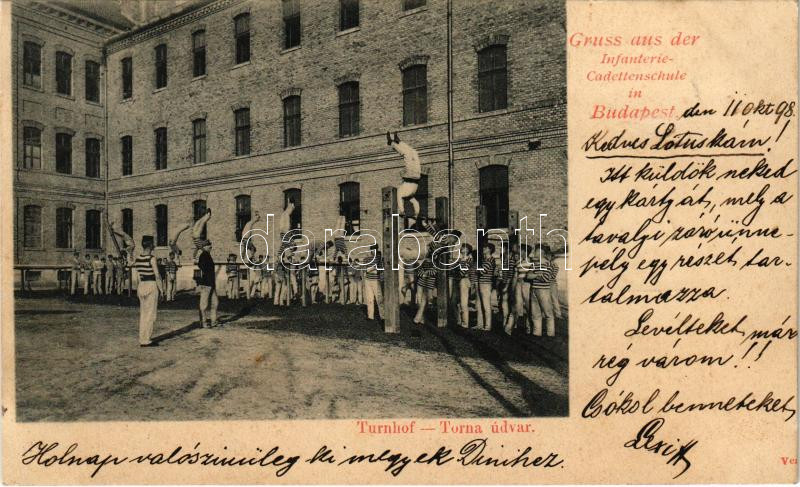 Gruss aus der
Infanterie-
Cadettenschule
in
Budapest, den 11 Okt 98.
Kedves Lotuskám!
Itt küldök neked
egy kártyát, mely a
tavalyi záróünne-
pély egy részét tar-
talmazza.
Levélteket már
rég várom!!
Csókol benneteket
darabanth
.com
Turnhof — Torna údvar.
Holnap valószinüleg ki megyek Dinihez.
Ver